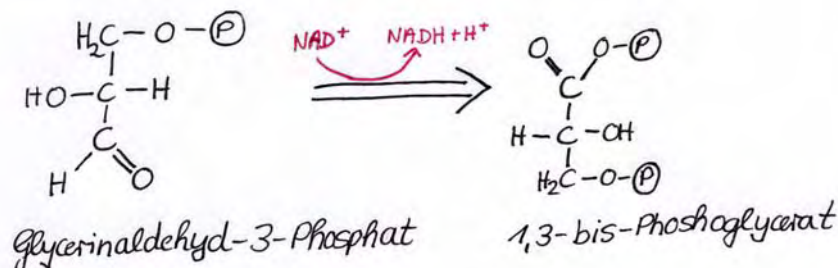 H₂C-O-Ⓟ
HO-C-H
C
H
O
NAD⁺
NADH+H⁺
O
O-Ⓟ
C
H-C-OH
H₂C-O-Ⓟ
Glycerinaldehyd-3-Phosphat
1,3-bis-Phoshoglycerat